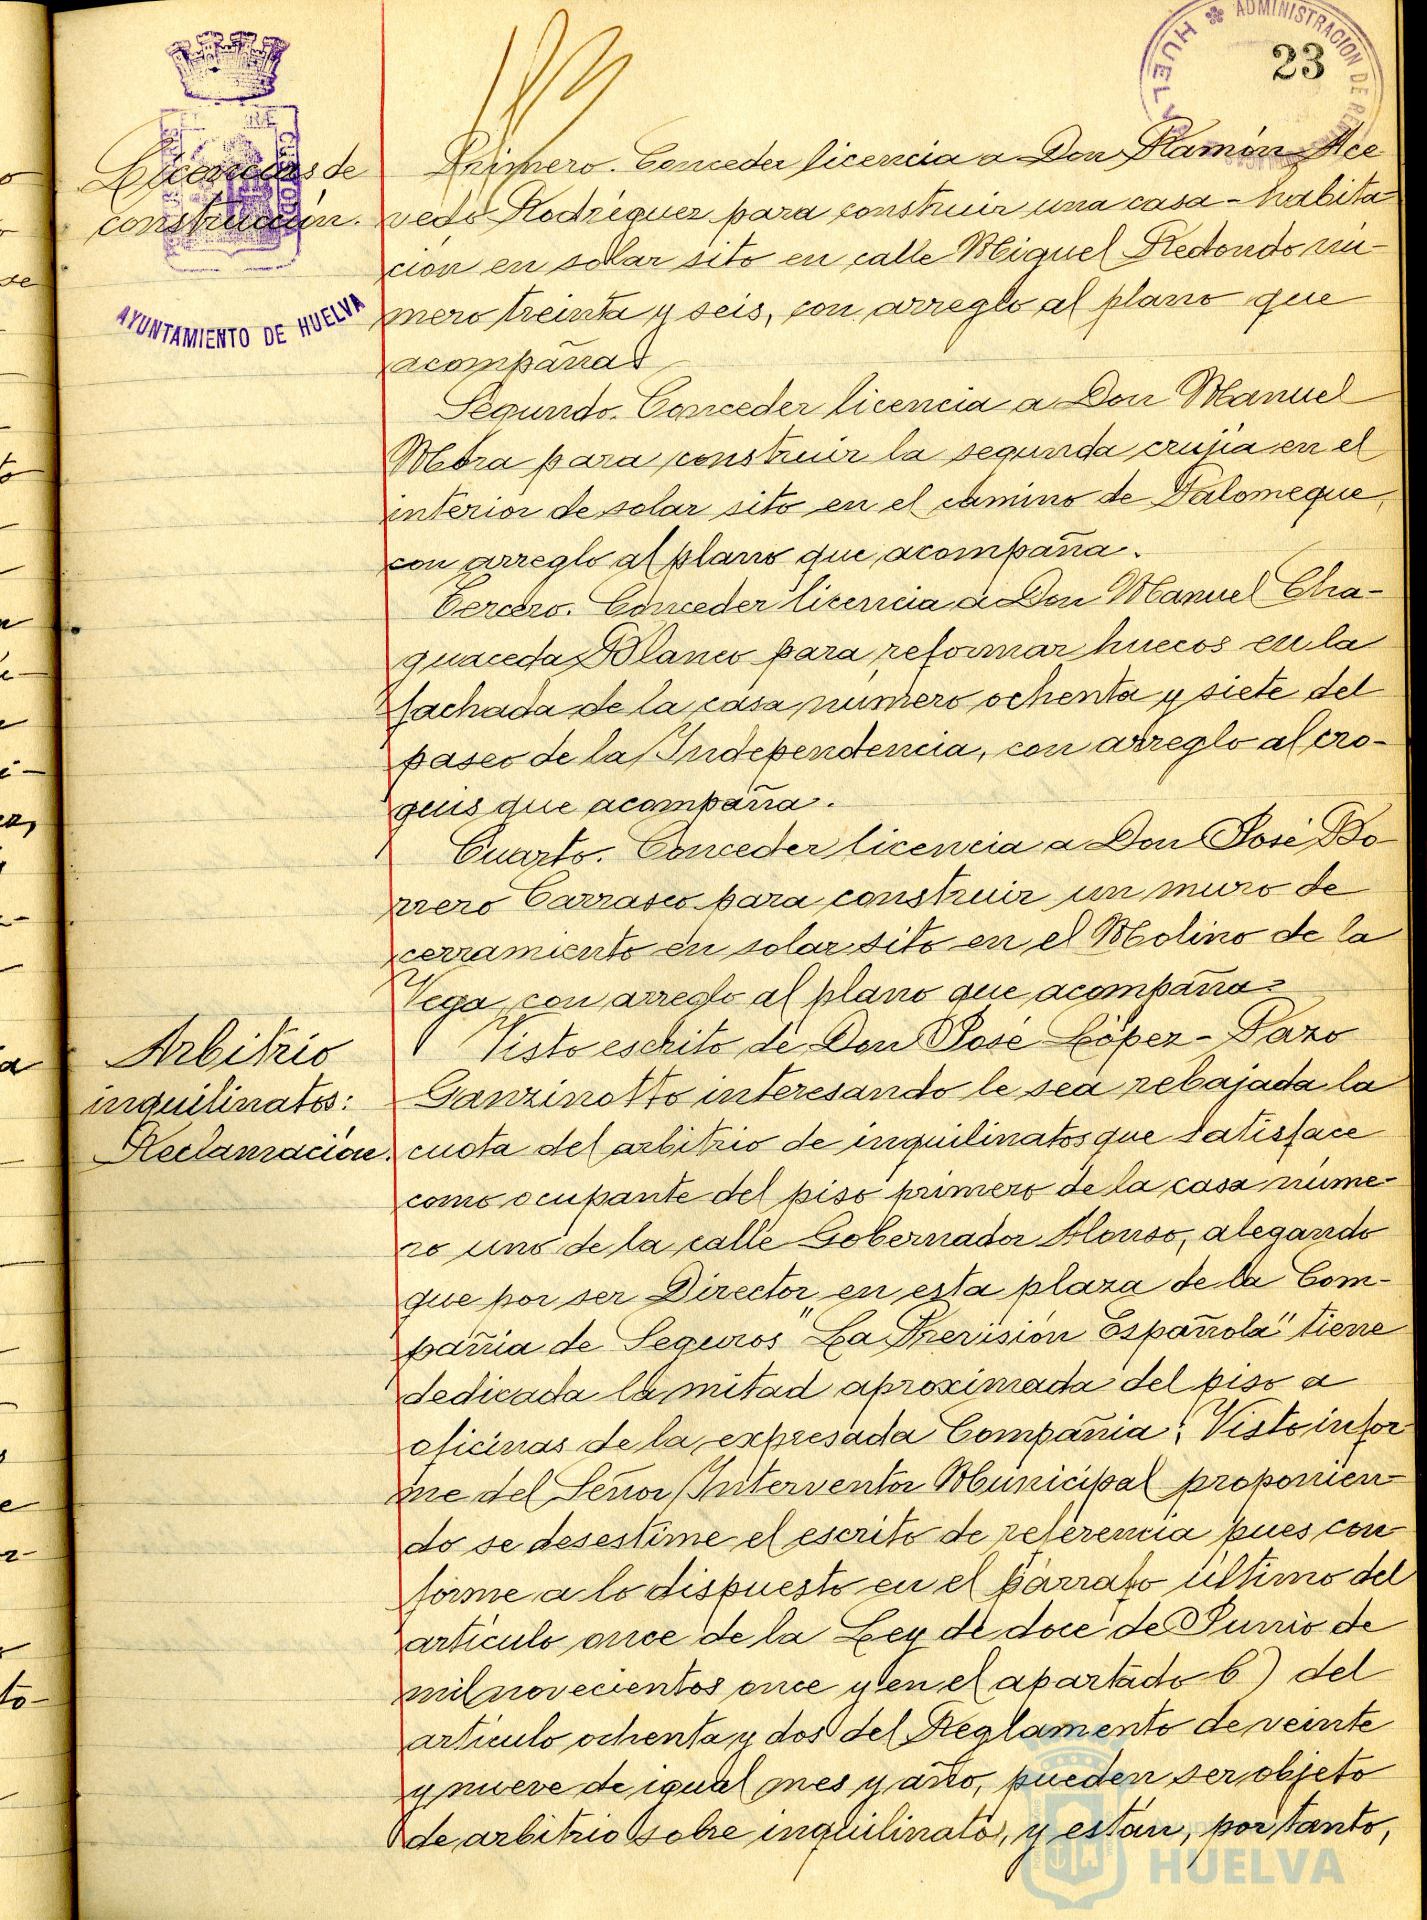 ADMINISTRACION DE RENTAS
HUELVA
23
Licencias de
construcción.
AYUNTAMIENTO DE HUELVA
Primero. Conceder licencia a Don Ramón Ace
vedo Rodríguez para construir una casa-habita-
ción en solar sito en calle Miguel Redondo nú-
mero treinta y seis, con arreglo al plano que
acompaña.
Segundo. Conceder licencia a Don Manuel
Mora para construir la segunda crujía en el
interior de solar sito en el camino de Palomeque,
con arreglo al plano que acompaña.
Tercero. Conceder licencia a Don Manuel Cha-
guaceda Blanco para reformar huecos en la
fachada de la casa número ochenta y siete del
paseo de la Independencia, con arreglo al cro-
quis que acompaña.
Cuarto. Conceder licencia a Don José Bo-
rrero Carrasco para construir un muro de
cerramiento en solar sito en el Molino de la
Vega, con arreglo al plano que acompaña.
Arbitrio
inquilinatos:
Reclamación.
Visto escrito de Don José López-Pazo
Ganzinotto interesando le sea rebajada la
cuota del arbitrio de inquilinatos que satisface
como ocupante del piso primero de la casa núme-
ro uno de la calle Gobernador Alonso, alegando
que por ser Director en esta plaza de la Com-
pañia de Seguros "La Previsión Española" tiene
dedicada la mitad aproximada del piso a
oficinas de la expresada Compañia; Visto infor
me del Señor Interventor Municipal proponien-
do se desestime el escrito de referencia pues con-
forme a lo dispuesto en el párrafo último del
artículo once de la Ley de doce de Junio de
mil novecientos once y en el apartado b) del
artículo ochenta y dos del Reglamento de veinte
y nueve de igual mes y año, pueden ser objeto
de arbitrio sobre inquilinato, y están, por tanto,
HUELVA